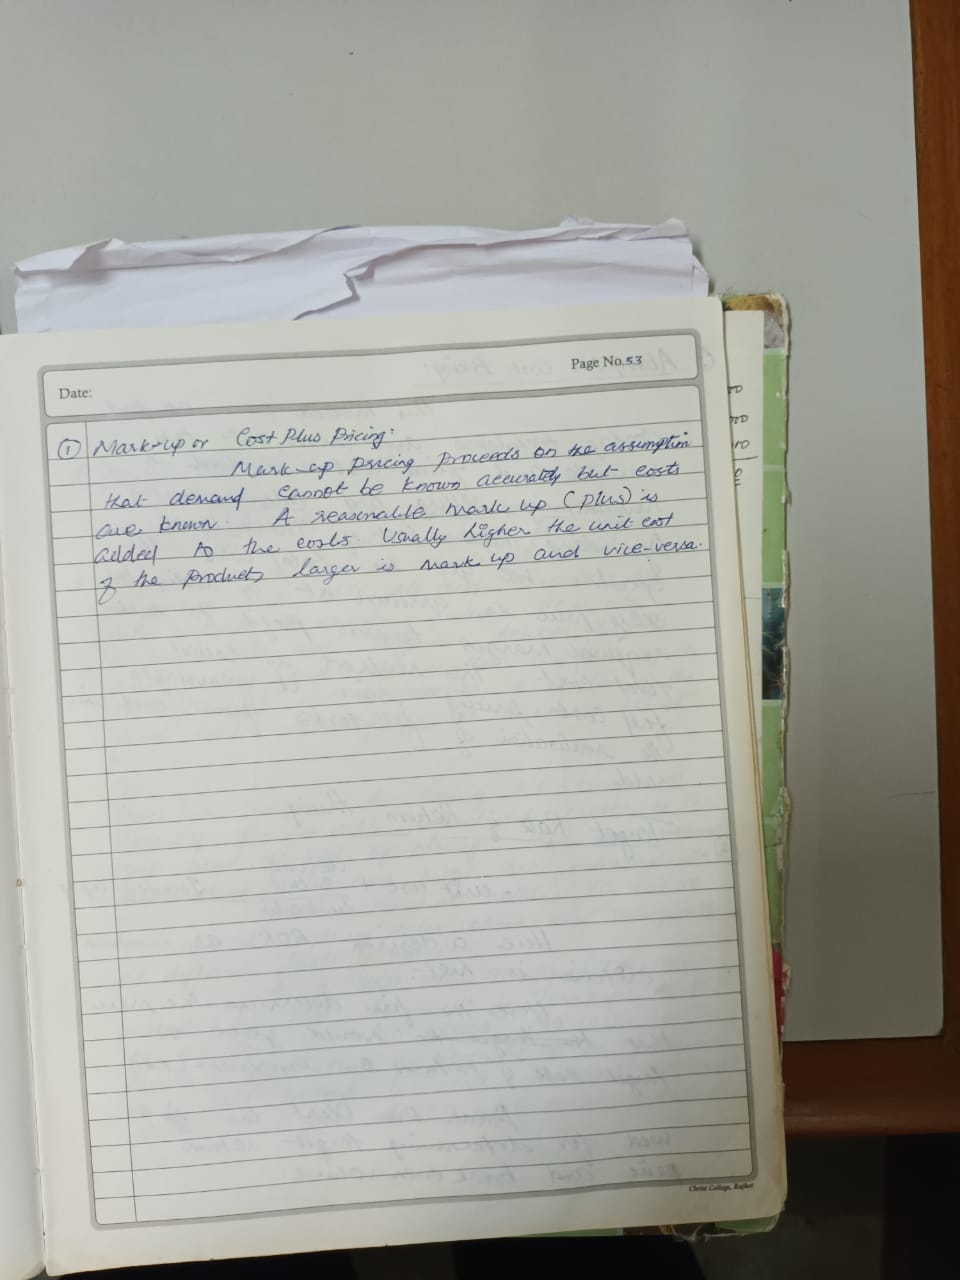 Page No. 53
Date:
① Mark-up or Cost Plus Pricing:
Mark-up pricing proceeds on the assumption
that demand cannot be known accurately but costs
are known. A reasonable mark up (plus) is
added to the costs. Usually higher the unit cost
of the products larger is mark up and vice-versa.
Christ College, Rajkot